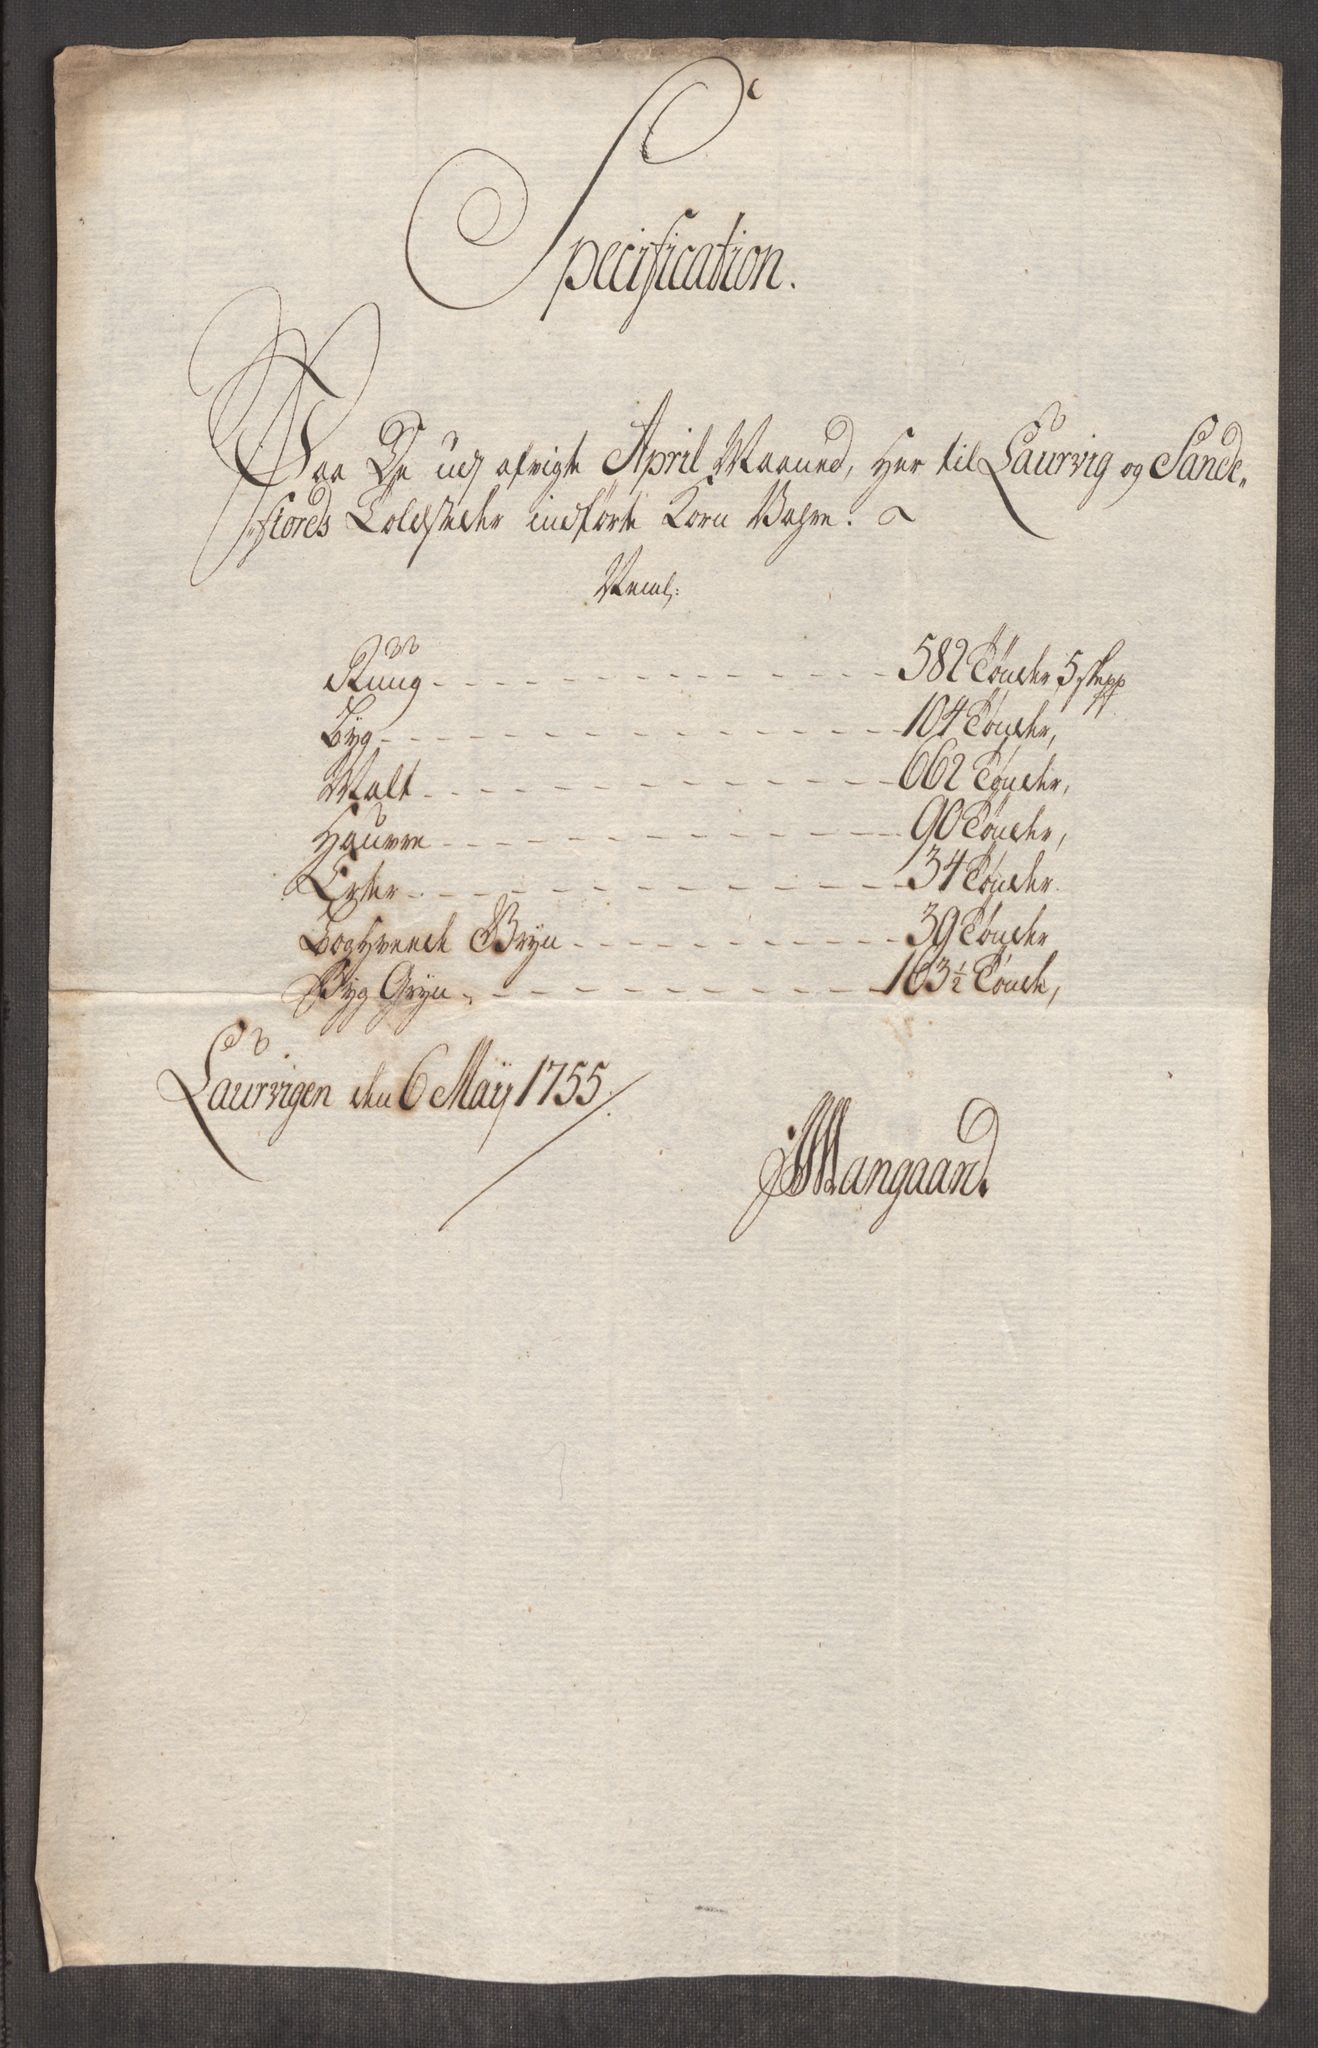 Specification.
Paa De udj afvigte April Maaned, her til Laurvig og Sande„
„fiords Toldsteder indførte Korn Vahre:
Neml:
Rùug - - - 582 Tønder, 5 skepp
Byg - - - 104 Tønder,
Malt - - - 662 Tønder,
Haufre - - - 90 Tønder,
Erter - - - 34 Tønder.
Boghvede Gryn - - - 39 Tønder
Byg Gryn - - - 163½ Tønde,
Laurvigen den 6 Maÿ 1755.
Mangaard.